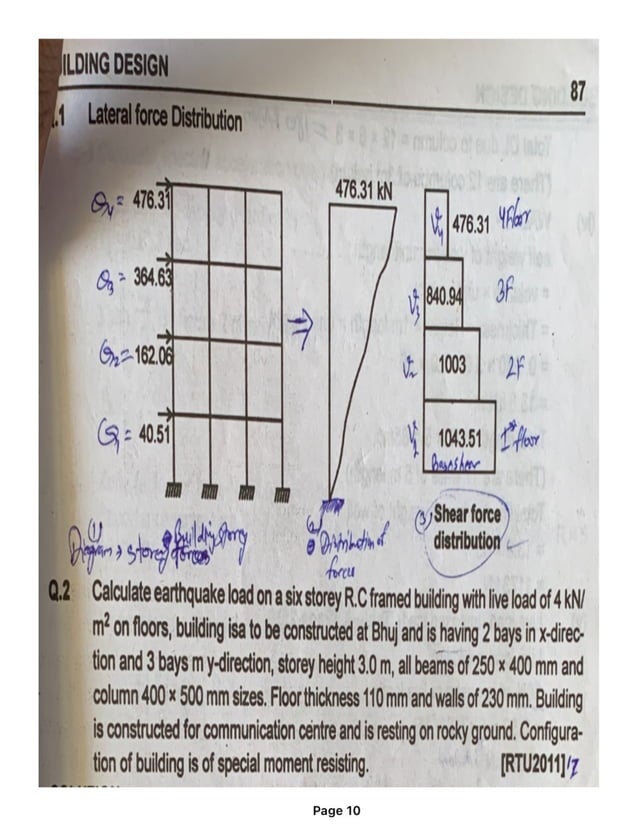 ILDING DESIGN
87
.1 Lateral force Distribution
Q4 = 476.31
Q3 = 364.63
Q2 = 162.06
Q1 = 40.51
476.31 kN
V4 476.31 4floor
V3 840.94 3F
V2 1003 2F
V1 1043.51 1st floor
Base shear
(1) Building story
Diagram → storey forces
(2) Distribution of
forces
(3) Shear force
distribution
Q.2 Calculate earthquake load on a six storey R.C framed building with live load of 4 kN/
m² on floors, building isa to be constructed at Bhuj and is having 2 bays in x-direc-
tion and 3 bays m y-direction, storey height 3.0 m, all beams of 250 × 400 mm and
column 400 × 500 mm sizes. Floor thickness 110 mm and walls of 230 mm. Building
is constructed for communication centre and is resting on rocky ground. Configura-
tion of building is of special moment resisting. [RTU2011]
Page 10